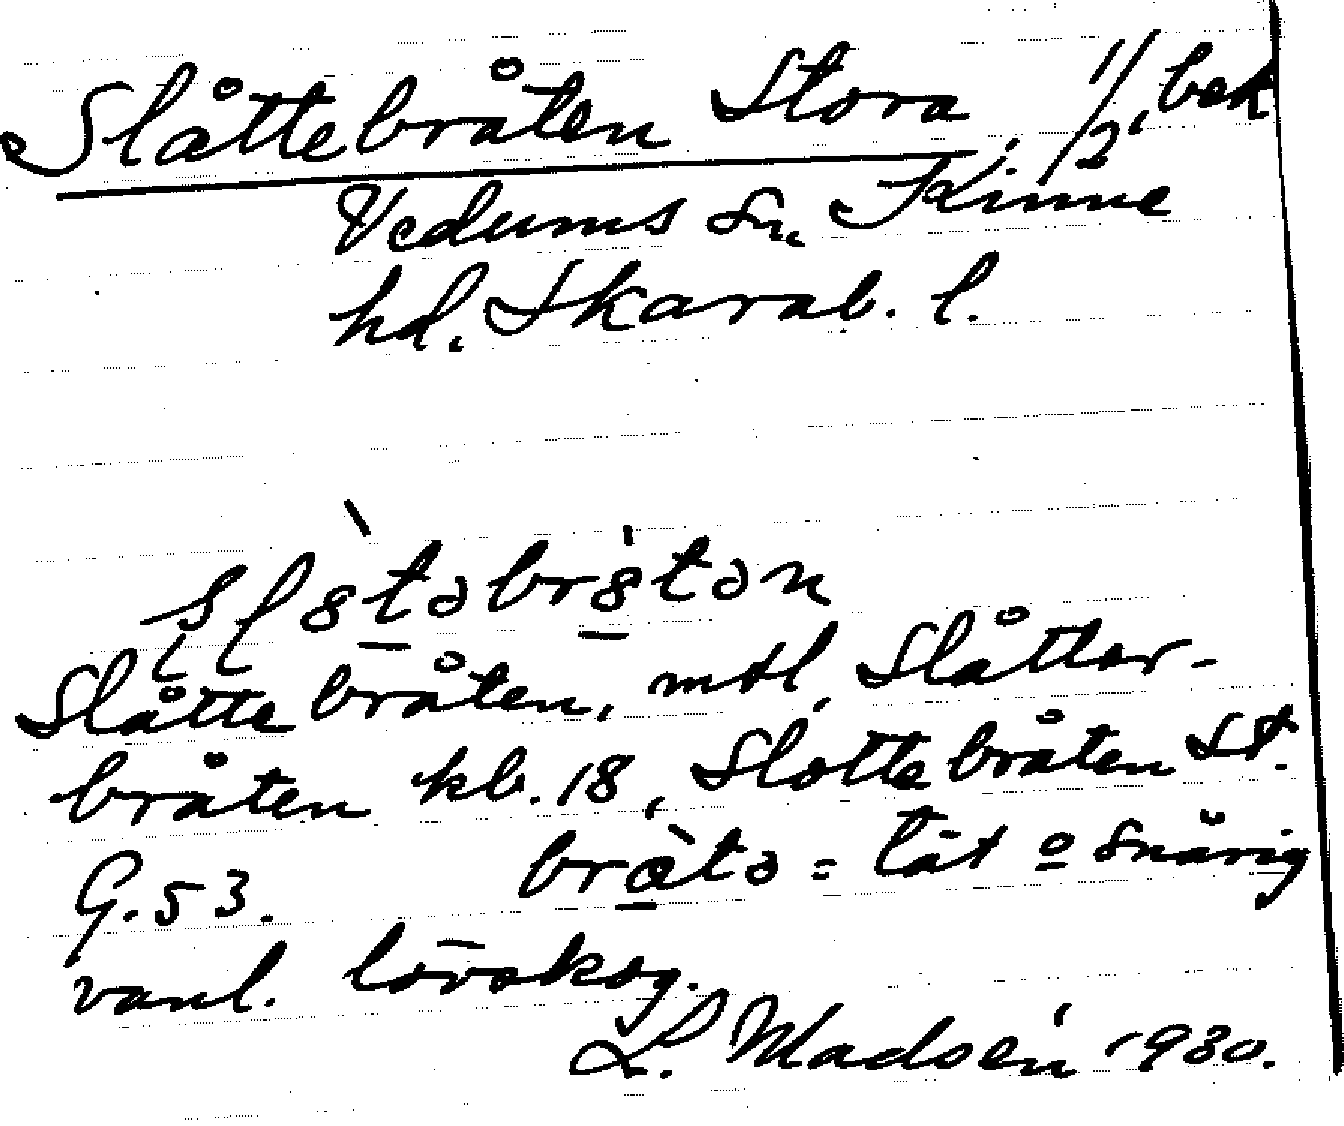 Slåttebråten Stora, 1/2, bek
Vedums sn. Kinne
hd. Skarab. l.
Slåttebråten, mtl, Slåtter-
bråten kb. 18, Slottebråten St.
G. 53. bràtə = tät o snårig
vanl. lövskog.
L. Madsén 1930.